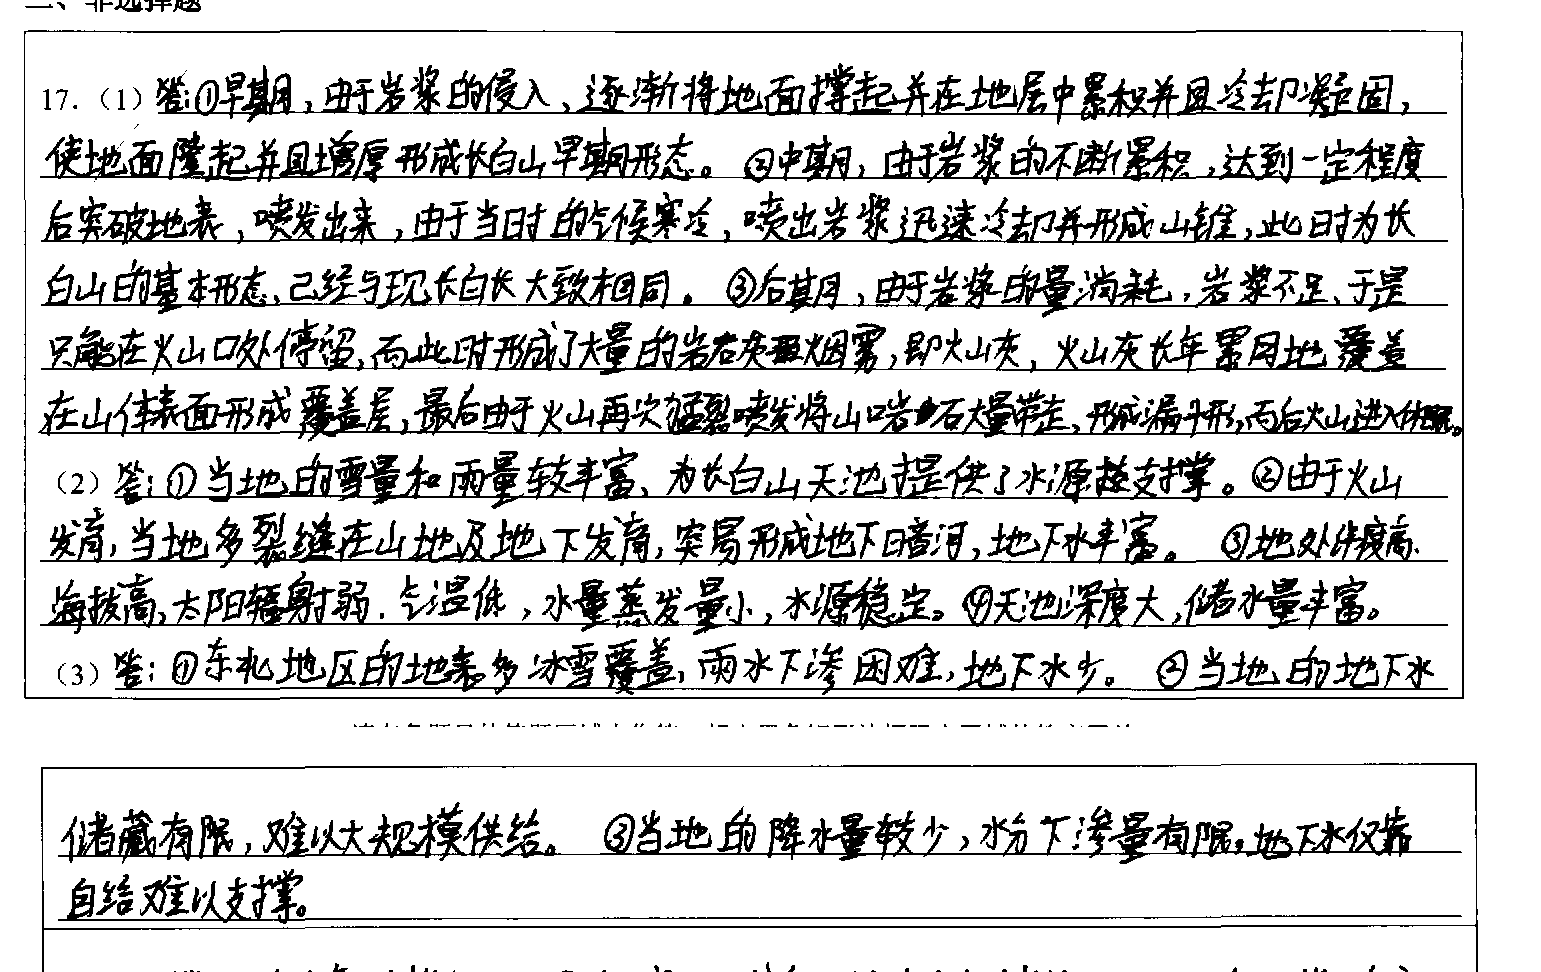 二、非选择题
17.（1）答:①早期，由于岩浆的侵入，逐渐将地面撑起并在地层中累积并且冷却凝固，
使地面隆起并且增厚形成长白山早期形态。②中期，由于岩浆的不断累积，达到一定程度
后突破地表，喷发出来，由于当时的气候寒冷，喷出岩浆迅速冷却并形成山锥，此时为长
白山的基本形态、已经与现长白长大致相同。③后期，由于岩浆的量消耗，岩浆不足、于是
只能在火山口处停留，而此时形成了大量的岩石灰烟雾，即火山灰，火山灰长年累月地覆盖
在山体表面形成覆盖层，最后由于火山再次猛裂喷发将山岩石大量带走、形成漏斗形，而后火山进入休眠。
（2）答：①当地的雪量和雨量较丰富、为长白山天池提供了水源支撑。②由于火山
发育，当地多裂缝在山地及地下发育，突易形成地下暗河，地下水丰富。③地处纬度高、
海拔高，太阳辐射弱．气温低，水量蒸发量小，水源稳定。④天池深度大，储水量丰富。
（3）答：①东北地区的地表多冰雪覆盖，雨水下渗困难，地下水少。②当地的地下水
储藏有限，难以大规模供给。③当地的降水量较少，水分下渗量有限，地下水仅靠
自给难以支撑。